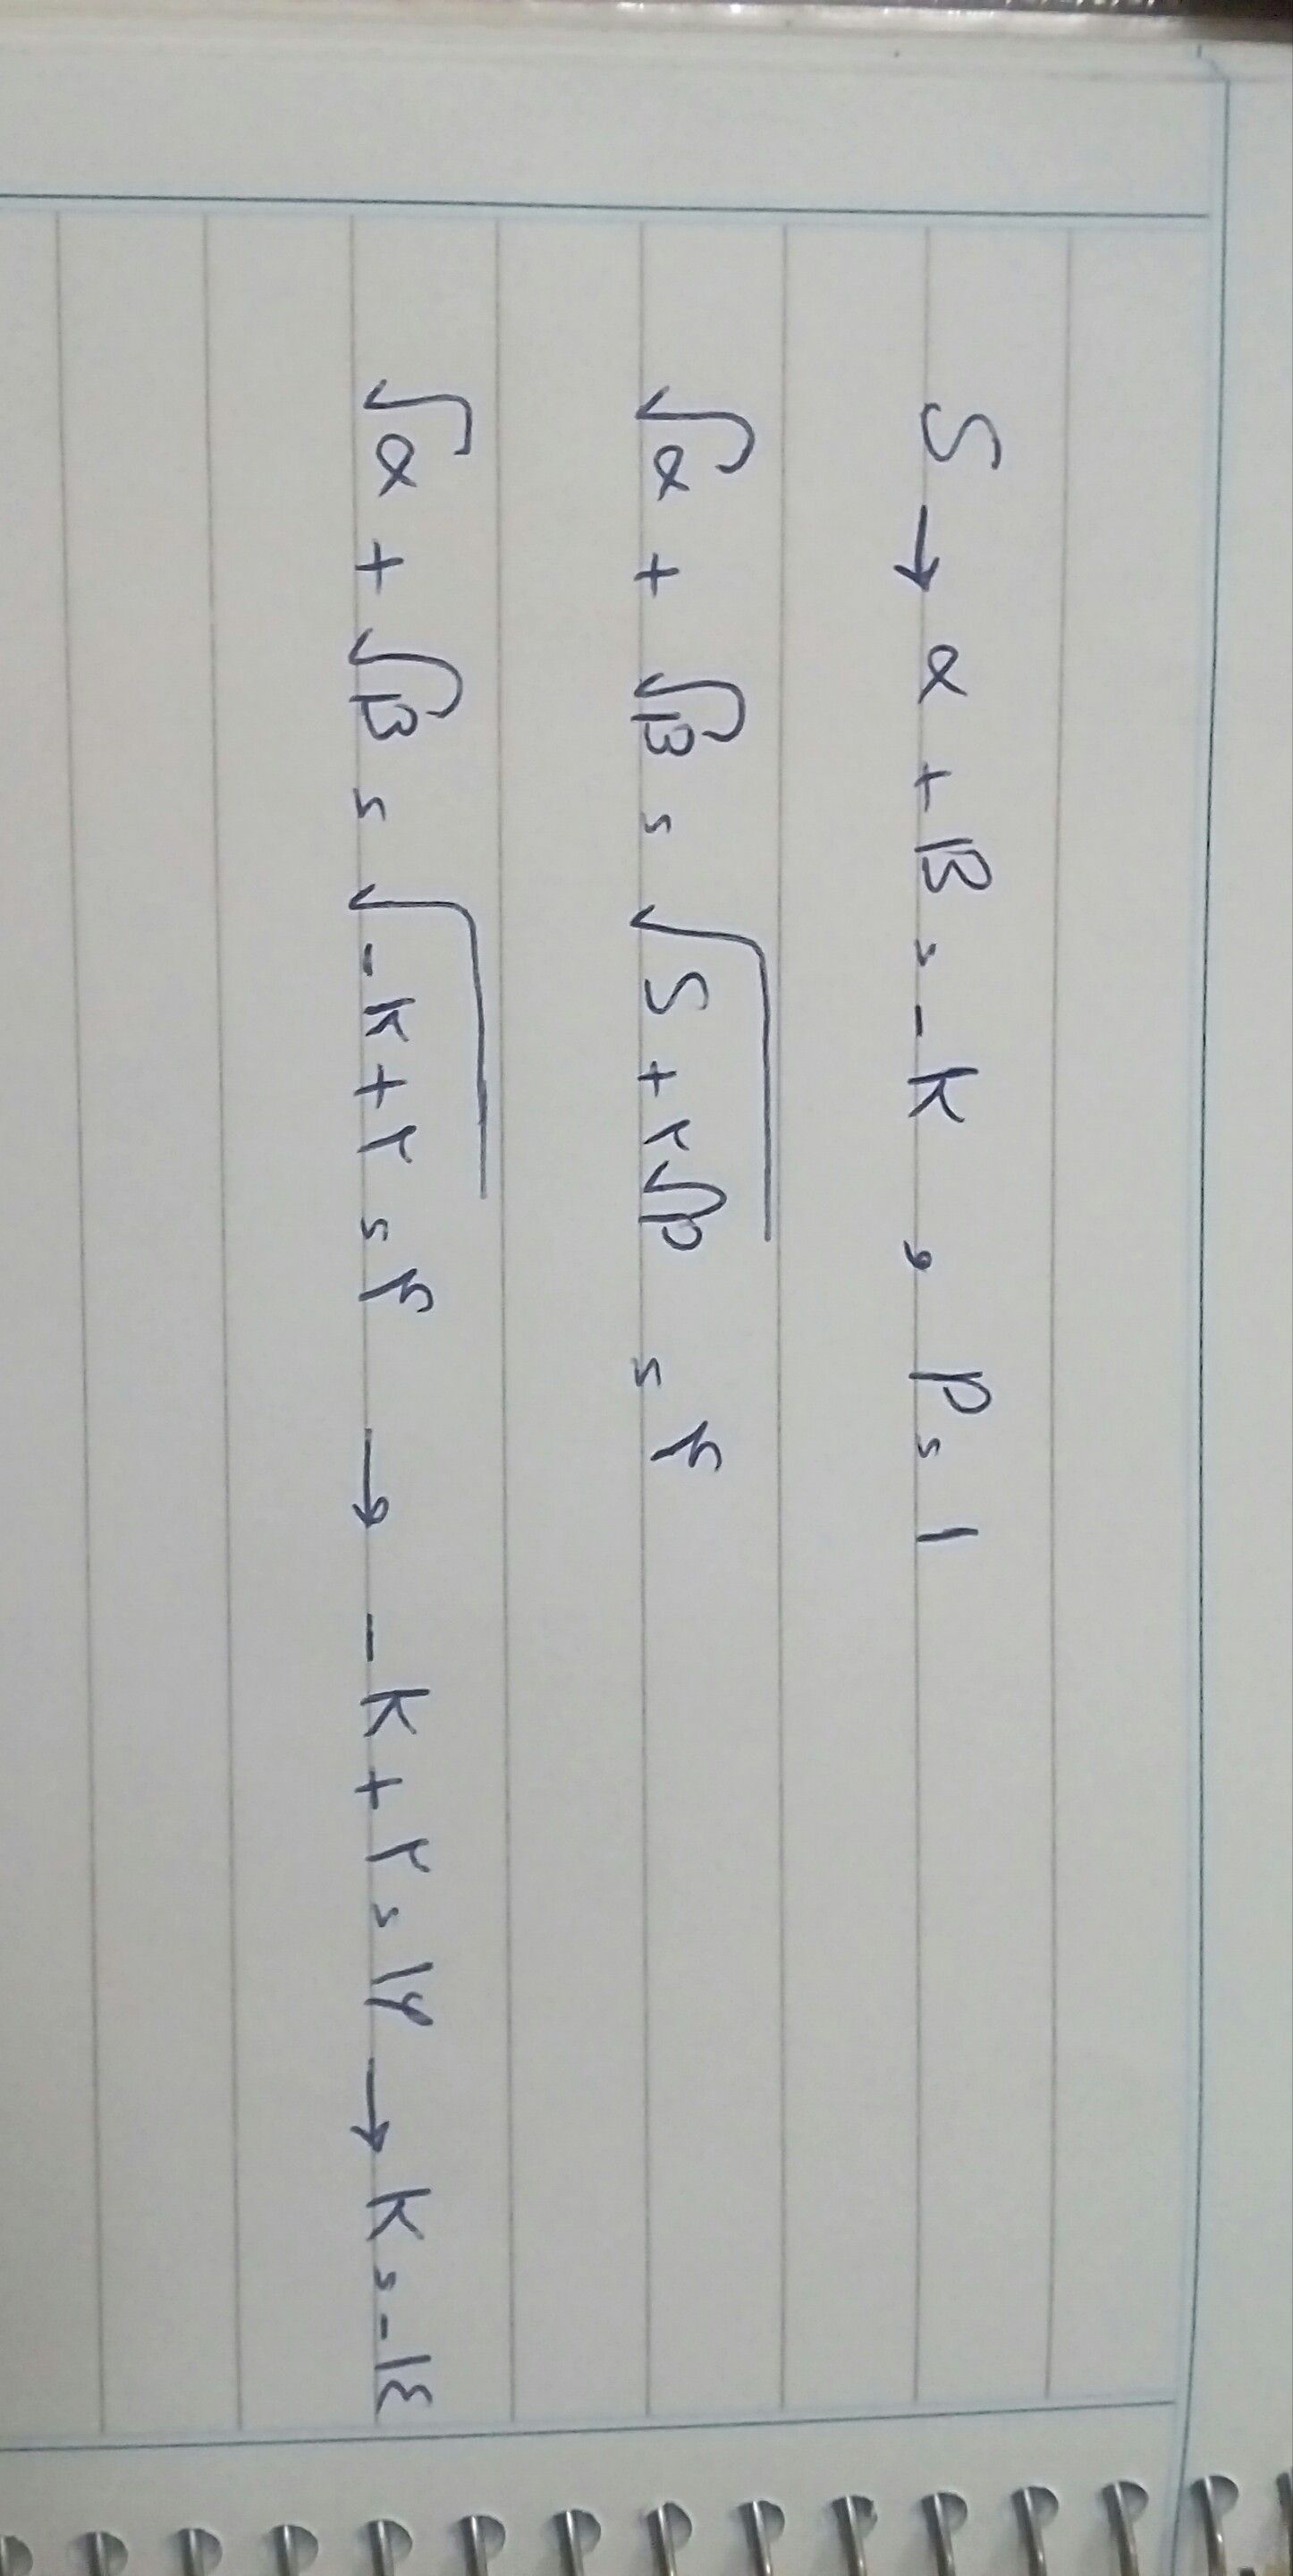 S → α + β = -k , P = ۱
√α + √β = √(S + ۲√P) = ۴
√α + √β = √(-k + ۲) = ۴ → -k + ۲ = ۱۶ → k = -۱۴